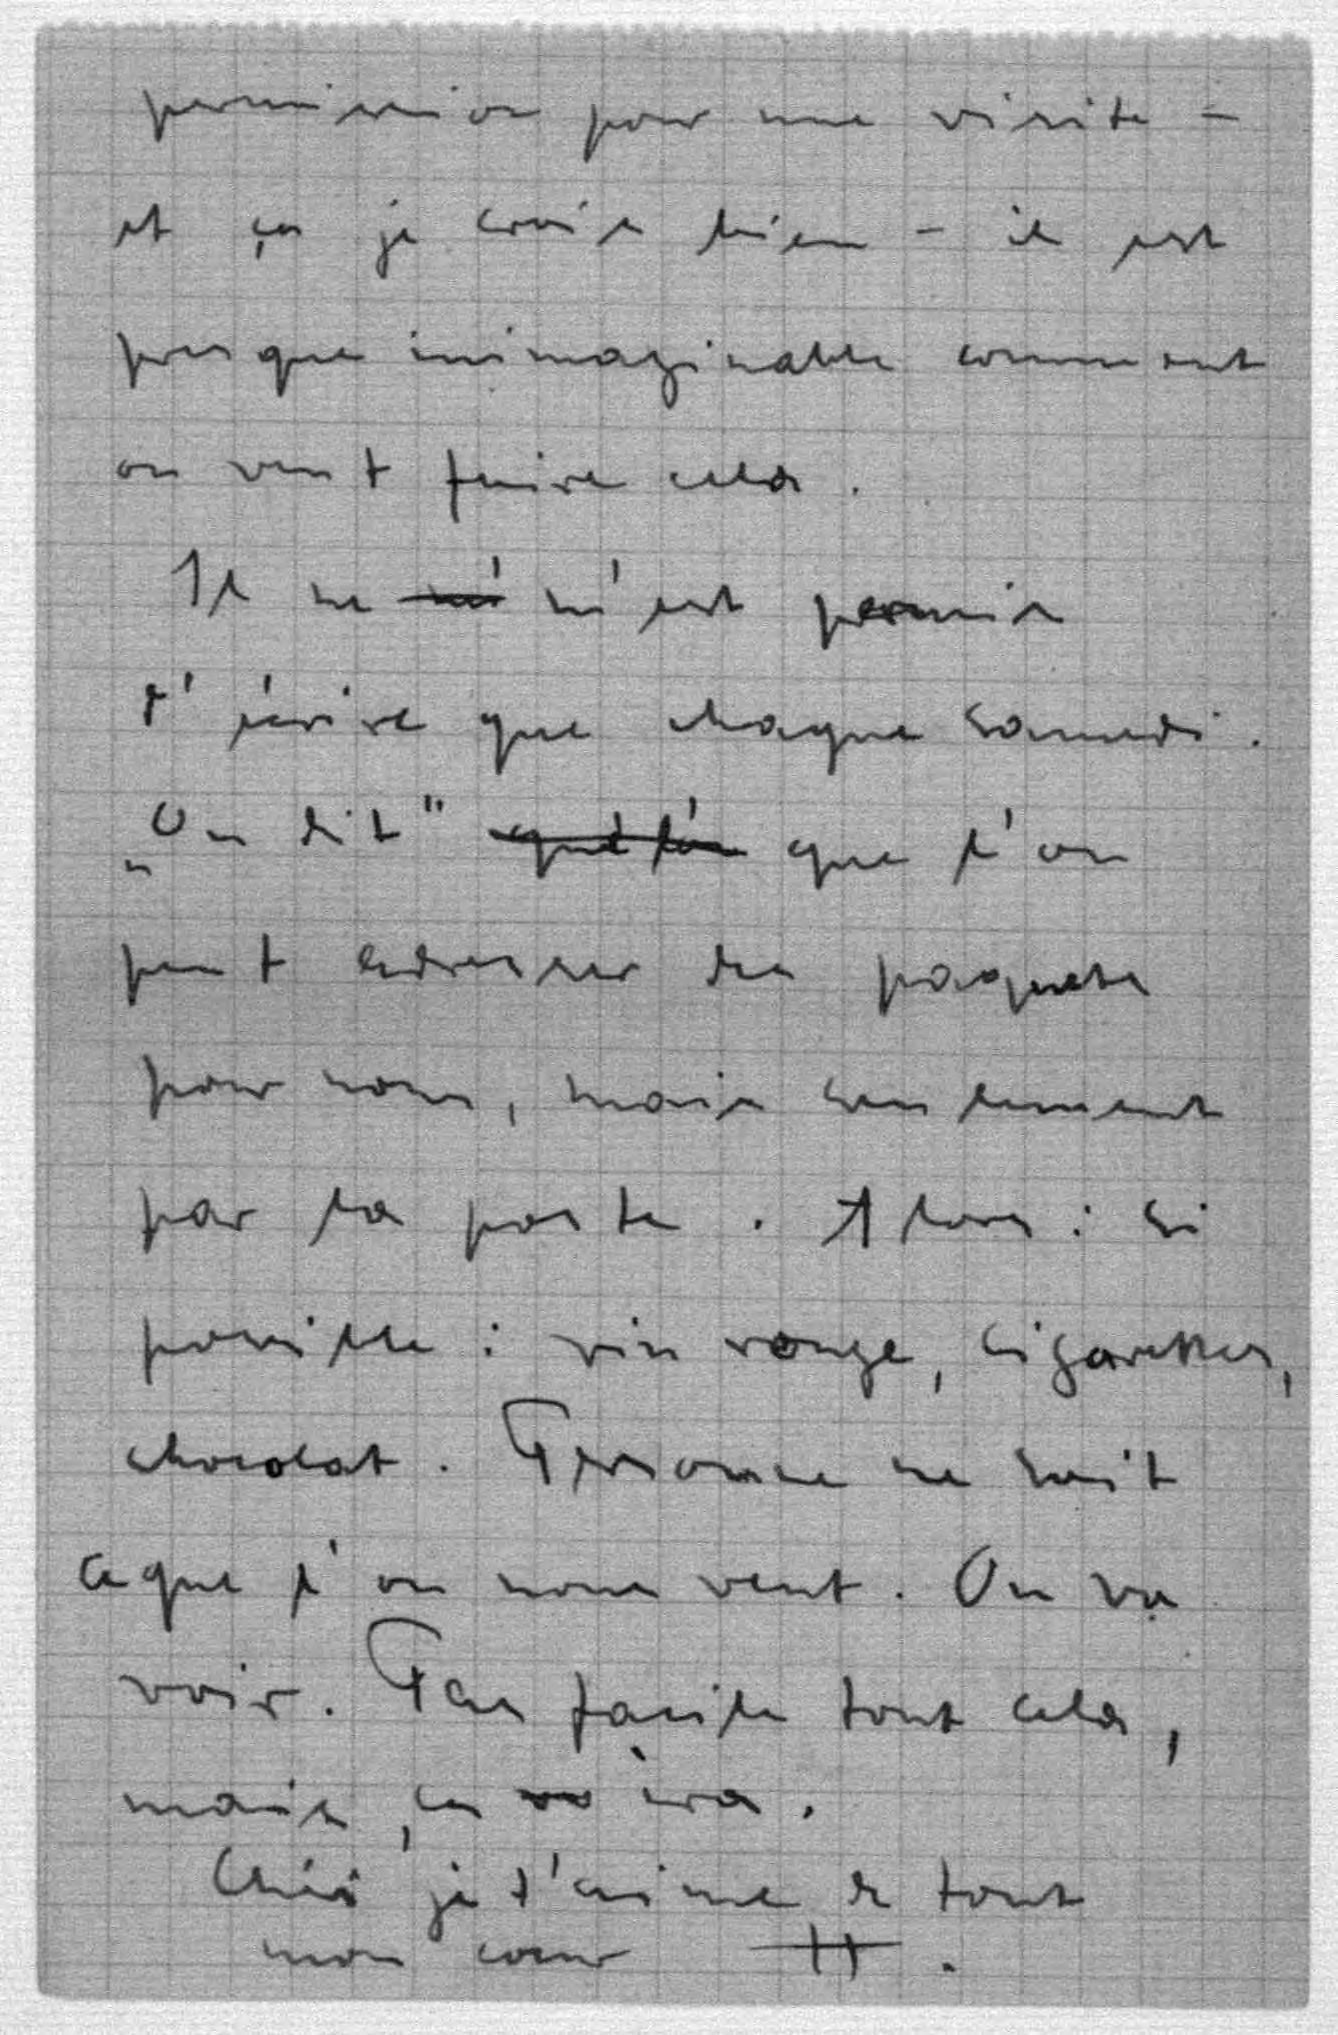 permission pour une visite –
et ça je crois bien – il est
presque inimaginable comment
on veut faire cela.
Il ne m' m'est permis
t'écrire que chaque samedi.
„On dit" que l'on que l'on
peut adresser des paquets
pour nous, mais seulement
par la poste. Alors : si
possible : vin rouge, cigarettes,
chocolat. Personne ne sait
ce que l'on nous veut. On va
voir. Pas facile tout cela,
mais ça ira.
Chéri je t'aime de tout
mon cœur H.